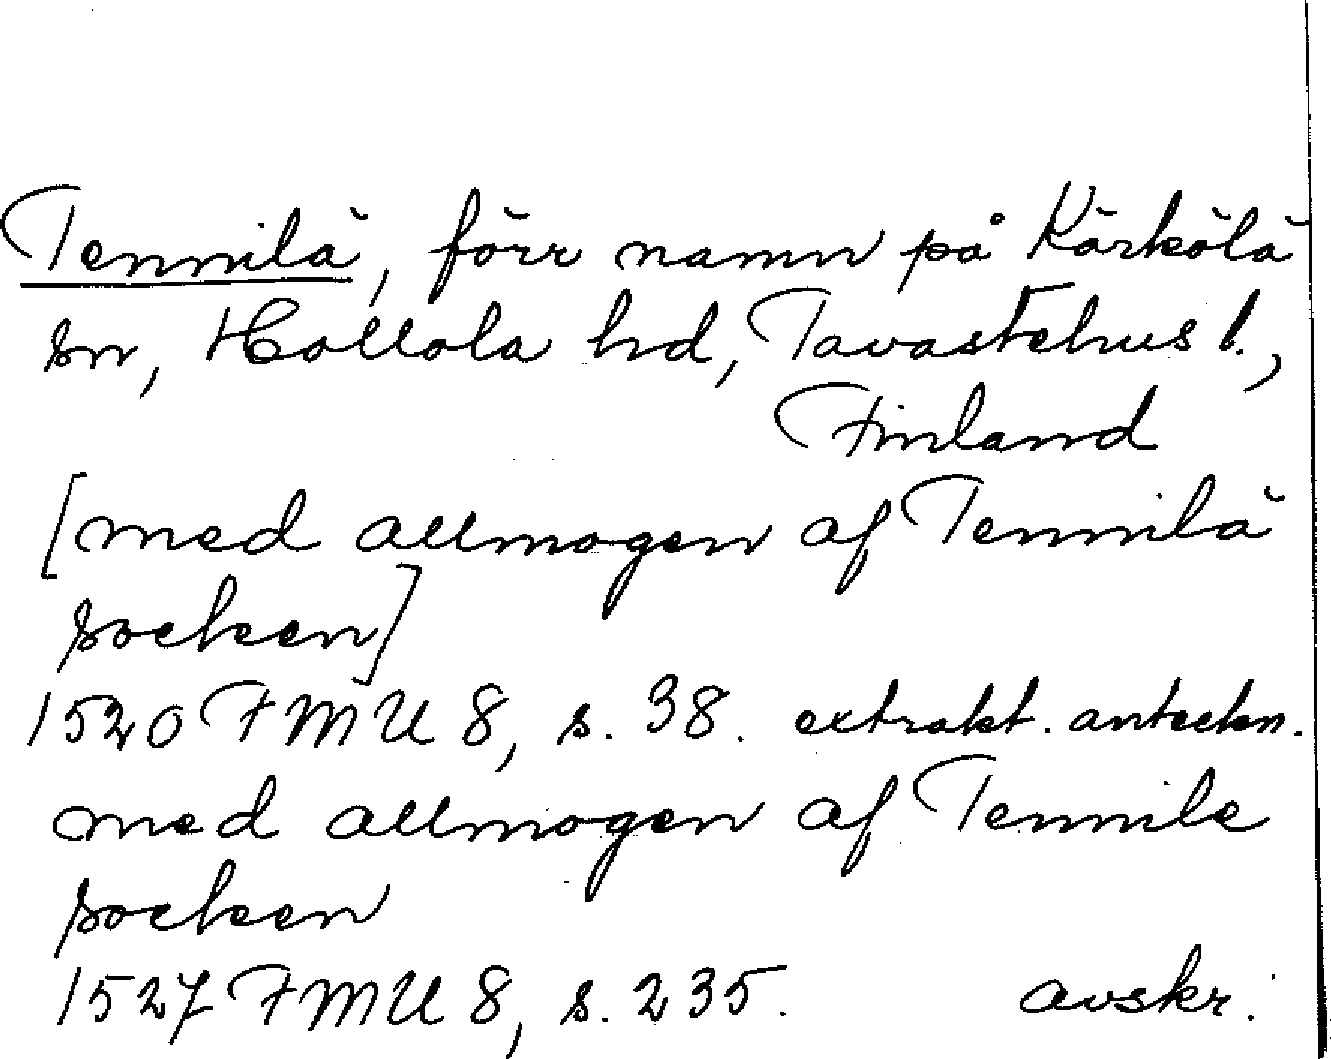 Tennilä, förr namn på Kärkölä
sn, Hollola hd, Tavastehus l.,
Finland
[med allmogen af Tennilä
socken]
1520 FMU 8, s. 38. extrakt. anteckn.
med allmogen af Tennile
socken
1527 FMU 8, s. 235. avskr.